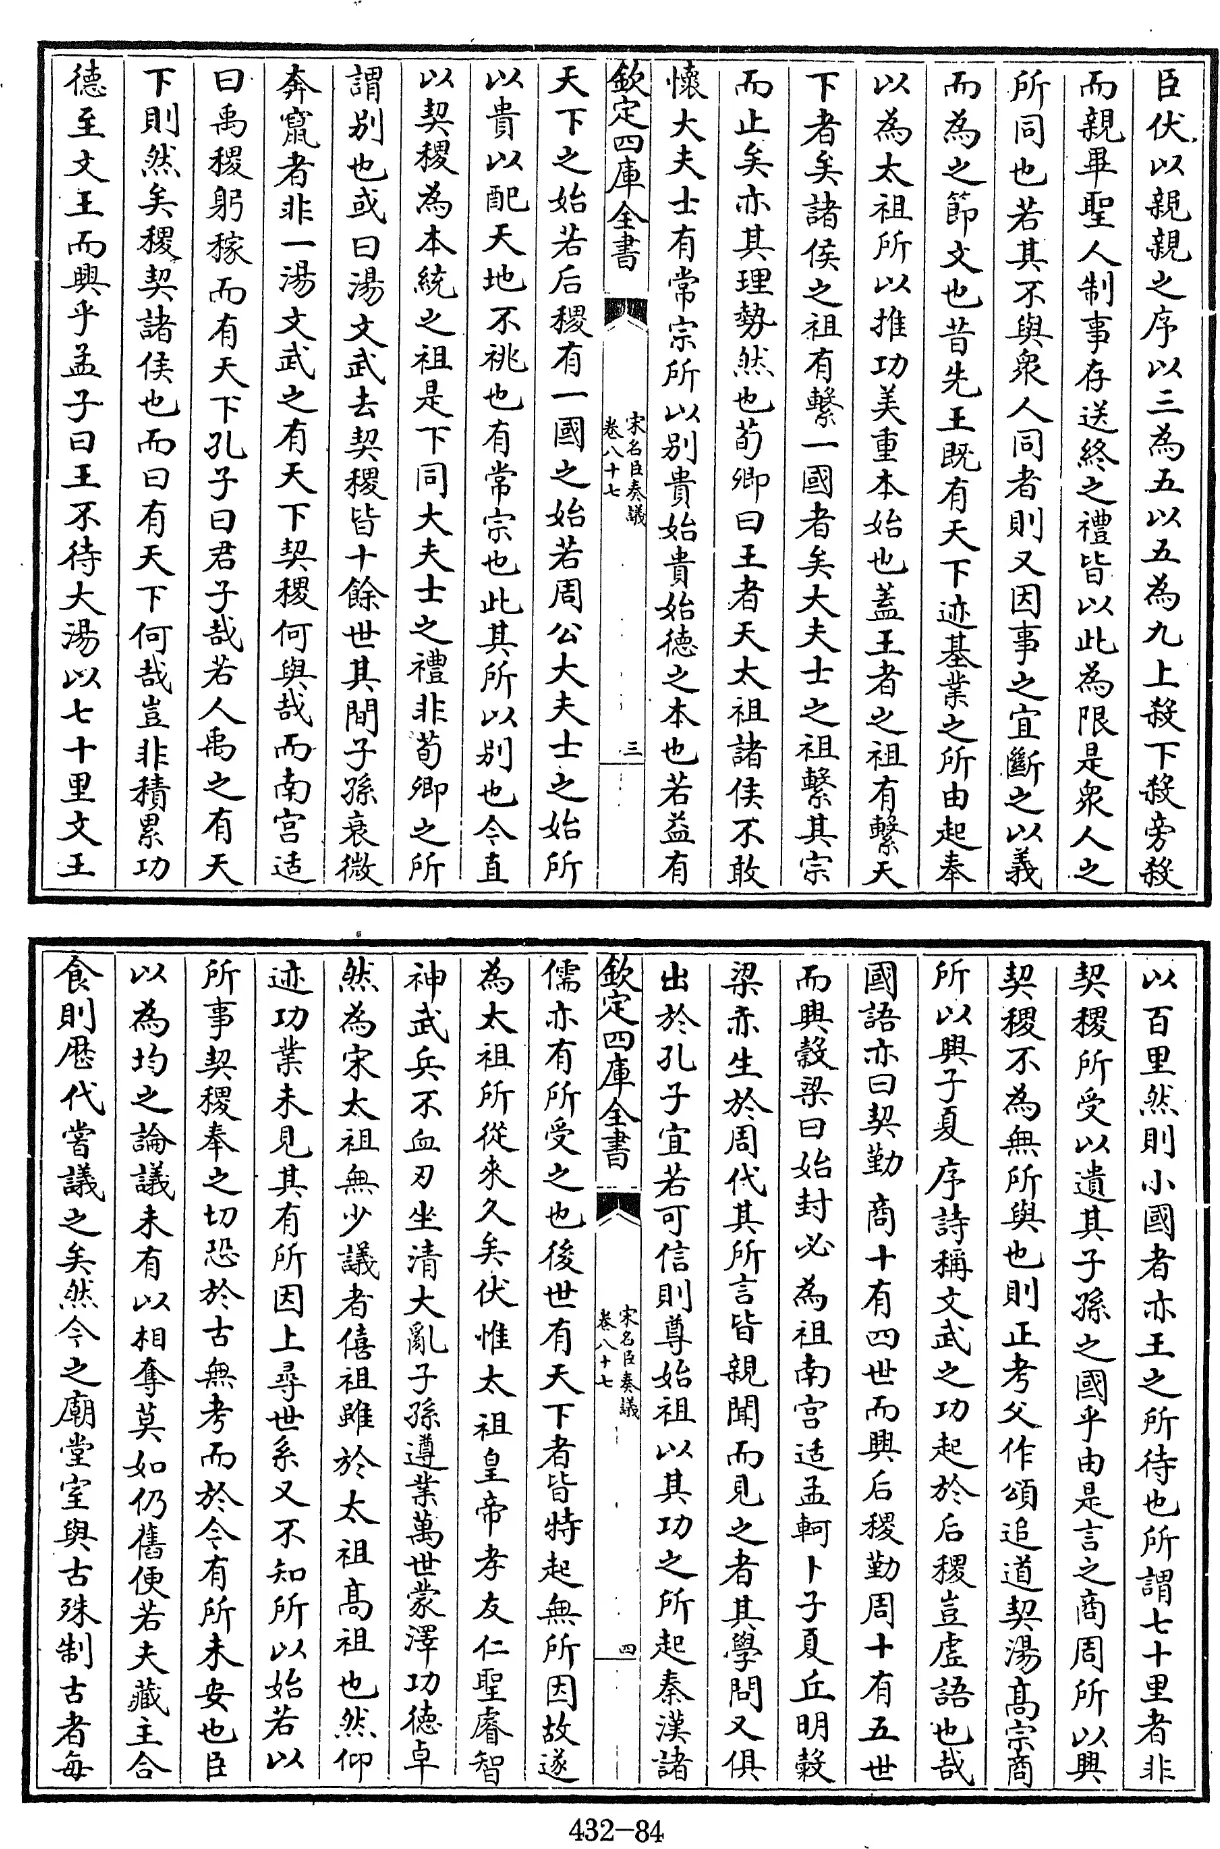 臣伏以親親之序以三為五以五為九上殺下殺旁殺
而親畢聖人制事存送終之禮皆以此為限是衆人之
所同也若其不與衆人同者則又因事之宜斷之以義
而為之節文也昔先王既有天下迹基業之所由起奉
以為太祖所以推功美重本始也蓋王者之祖有繫天
下者矣諸侯之祖有繫一國者矣大夫士之祖繫其宗
而止矣亦其理勢然也荀卿曰王者天太祖諸侯不敢
懐大夫士有常宗所以别貴始貴始徳之本也若益有
欽定四庫全書
宋名臣奏議
卷八十七
三
天下之始若后稷有一國之始若周公大夫士之始所
以貴以配天地不祧也有常宗也此其所以别也今直
以契稷為本統之祖是下同大夫士之禮非荀卿之所
謂别也或曰湯文武去契稷皆十餘世其間子孫衰微
奔竄者非一湯文武之有天下契稷何與哉而南宫适
曰禹稷躬稼而有天下孔子曰君子哉若人禹之有天
下則然矣稷契諸侯也而曰有天下何哉豈非積累功
徳至文王而興乎孟子曰王不待大湯以七十里文王
以百里然則小國者亦王之所待也所謂七十里者非
契稷所受以遺其子孫之國乎由是言之商周所以興
契稷不為無所與也則正考父作頌追道契湯髙宗商
所以興子夏序詩稱文武之功起於后稷豈虚語也哉
國語亦曰契勤商十有四世而興后稷勤周十有五世
而興穀梁曰始封必為祖南宫适孟軻卜子夏丘明穀
梁亦生於周代其所言皆親聞而見之者其學問又俱
出於孔子宜若可信則尊始祖以其功之所起秦漢諸
欽定四庫全書
宋名臣奏議
卷八十七
四
儒亦有所受之也後世有天下者皆特起無所因故遂
為太祖所從來久矣伏惟太祖皇帝孝友仁聖睿智
神武兵不血刃坐清大亂子孫遵業萬世蒙澤功徳卓
然為宋太祖無少議者僖祖雖於太祖髙祖也然仰
迹功業未見其有所因上尋世系又不知所以始若以
所事契稷奉之切恐於古無考而於今有所未安也臣
以為均之論議未有以相奪莫如仍舊便若夫藏主合
食則歴代嘗議之矣然今之廟堂室與古殊制古者每
432-84